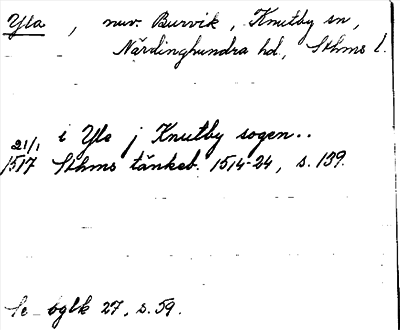 Yla, nuv. Burvik, Knutby sn,
Närdinghundra hd, Sthms l.
21/1 i Yle j Knutby sogen..
1517 Sthms tänkeb. 1514-24, s. 139.
Se bglk 27, s. 59.